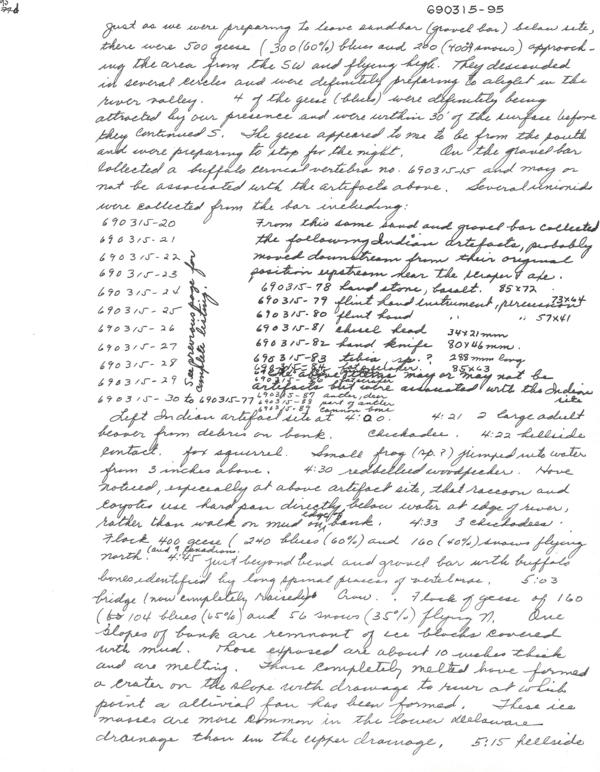 690315-95
Just as we were preparing to leave sandbar (gravel bar) below site,
there were 500 geese (300(60%) blues and 200 (40%) snows) approach-
ing the area from the SW and flying high. They descended
in several circles and were definitely preparing to alight in the
river valley. 4 of the geese (blues) were definitely being
attracted by our presence and were within 30' of the surface before
they continued S. The geese appeared to me to be from the south
and were preparing to stop for the night. On the gravel bar
collected a buffalo cervical vertebra no. 690315-15 and may or
not be associated with the artifacts above. Several unionids
were collected from the bar including:
690315-20
690315-21
690315-22
690315-23
690315-24
690315-25
690315-26
690315-27
690315-28
690315-29
690315-30 to 690315-77
See previous page for
complete listing.
From this same sand and gravel bar collected
the following Indian artifacts, probably
moved downstream from their original
position upstream near the scraper & axe.
690315-78 hand stone, basalt. 85x72
690315-79 flint hand instrument, percussion 73x64
690315-80 flint hand " " 57x41
690315-81 chisel head 34x21mm
690315-82 hand knife 80x46mm.
690315-83 tibia, sp.? 288mm long
690315-84 85x63
The above items may or may not be
artifacts but were associated with the Indian
site.
690315-87 antler, deer
690315-88 part of antler
690315-89 cannon bone
Left Indian artifact site at 4:20. 4:21 2 large adult
beaver from debris on bank. Chickadee. 4:22 hillside
contact. fox squirrel. Small frog (sp.?) jumped into water
from 3 inches above. 4:30 redbellied woodpecker. Have
noticed, especially at above artifact site, that raccoon and
coyotes use hard pan directly below water at edge of river,
rather than walk on mud on edge of bank. 4:33 3 chickadees.
Flock 400 geese (240 blues (60%) and 160 (40%) snows flying
north. (and 9 Canadians) 4:45 just beyond bend and gravel bar with buffalo
bones identified by long spinal process of vertebrae. 5:03
bridge (now completely raised). Crow. Flock of geese of 160
(104 blues (65%) and 56 snows (35%) flying N. One
slopes of bank are remnant of ice blocks covered
with mud. Those exposed are about 10 inches thick
and are melting. Those completely melted have formed
a crater on the slope with drainage to river at which
point a alluvial fan has been formed. These ice
masses are more common in the lower Delaware
drainage than in the upper drainage. 5:15 hillside